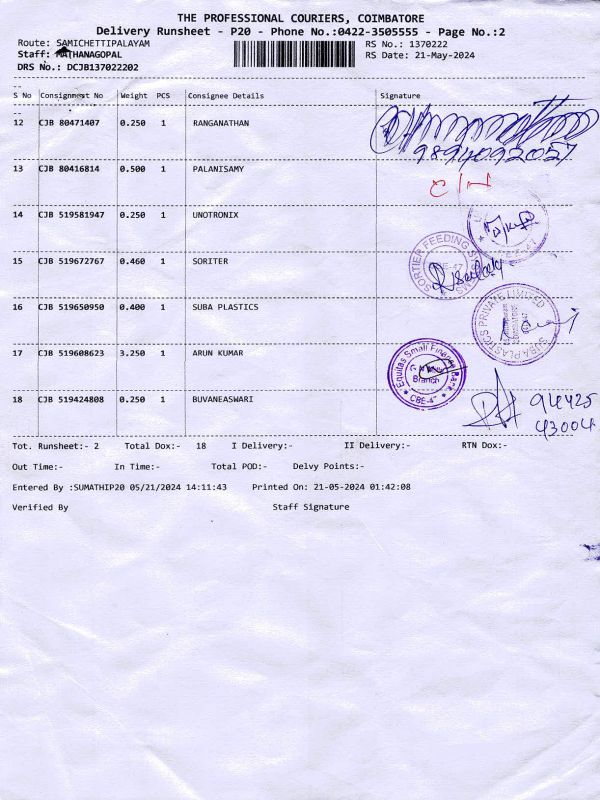 THE PROFESSIONAL COURIERS, COIMBATORE
Delivery Runsheet - P20 - Phone No.:0422-3505555 - Page No.:2
Route: SAMICHETTIPALAYAM RS No.: 1370222
Staff: MATHANAGOPAL RS Date: 21-May-2024
DRS No.: DCJB137022202
S No Consignment No Weight PCS Consignee Details Signature
12 CJB 80471407 0.250 1 RANGANATHAN
9894092057
13 CJB 80416814 0.500 1 PALANISAMY
14 CJB 519581947 0.250 1 UNOTRONIX
15 CJB 519672767 0.460 1 SORITER
16 CJB 519650950 0.400 1 SUBA PLASTICS
SUBA PLASTICS PRIVATE LIMITED
17 CJB 519608623 3.250 1 ARUN KUMAR
Equitas Small Finance Bank
Branch
CBE-47
18 CJB 519424808 0.250 1 BUVANEASWARI
94425
43004
Tot. Runsheet:- 2 Total Dox:- 18 I Delivery:- II Delivery:- RTN Dox:-
Out Time:- In Time:- Total POD:- Delvy Points:-
Entered By :SUMATHIP20 05/21/2024 14:11:43 Printed On: 21-05-2024 01:42:08
Verified By Staff Signature